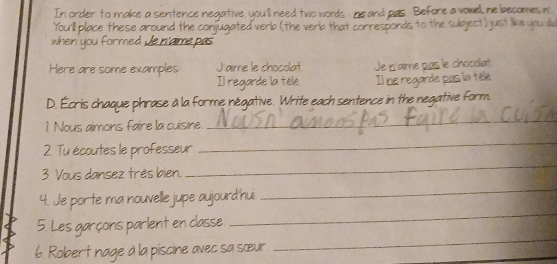 In order to make a sentence negative, you'll need two words: ne and pas. Before a vowel, ne becomes n'.
You'll place these around the conjugated verb (the verb that corresponds to the subject) just like you did
when you formed Je n'aime pas
Here are some examples: J'aime le chocolat. Je n'aime pas le chocolat.
Il regarde la télé. Il ne regarde pas la télé.
D. Écris chaque phrase à la forme négative. Write each sentence in the negative form.
1. Nous aimons faire la cuisine. Nous n' amons pas faire la cuisin
2. Tu écoutes le professeur
3. Vous dansez très bien.
4. Je porte ma nouvelle jupe aujourd'hui
5. Les garçons parlent en classe.
6. Robert nage à la piscine avec sa sœur